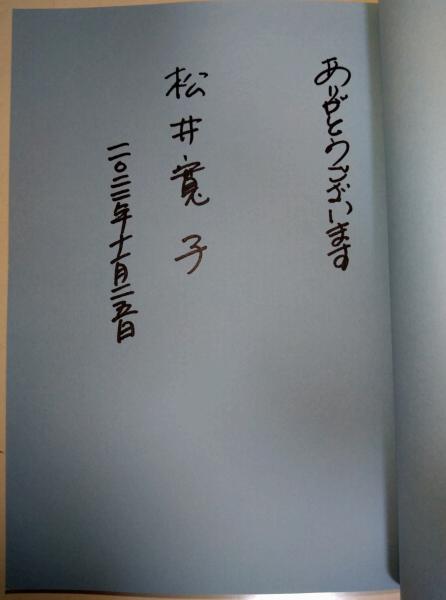 ありがとうございます
松井寛子
二〇二二年十一月二五日